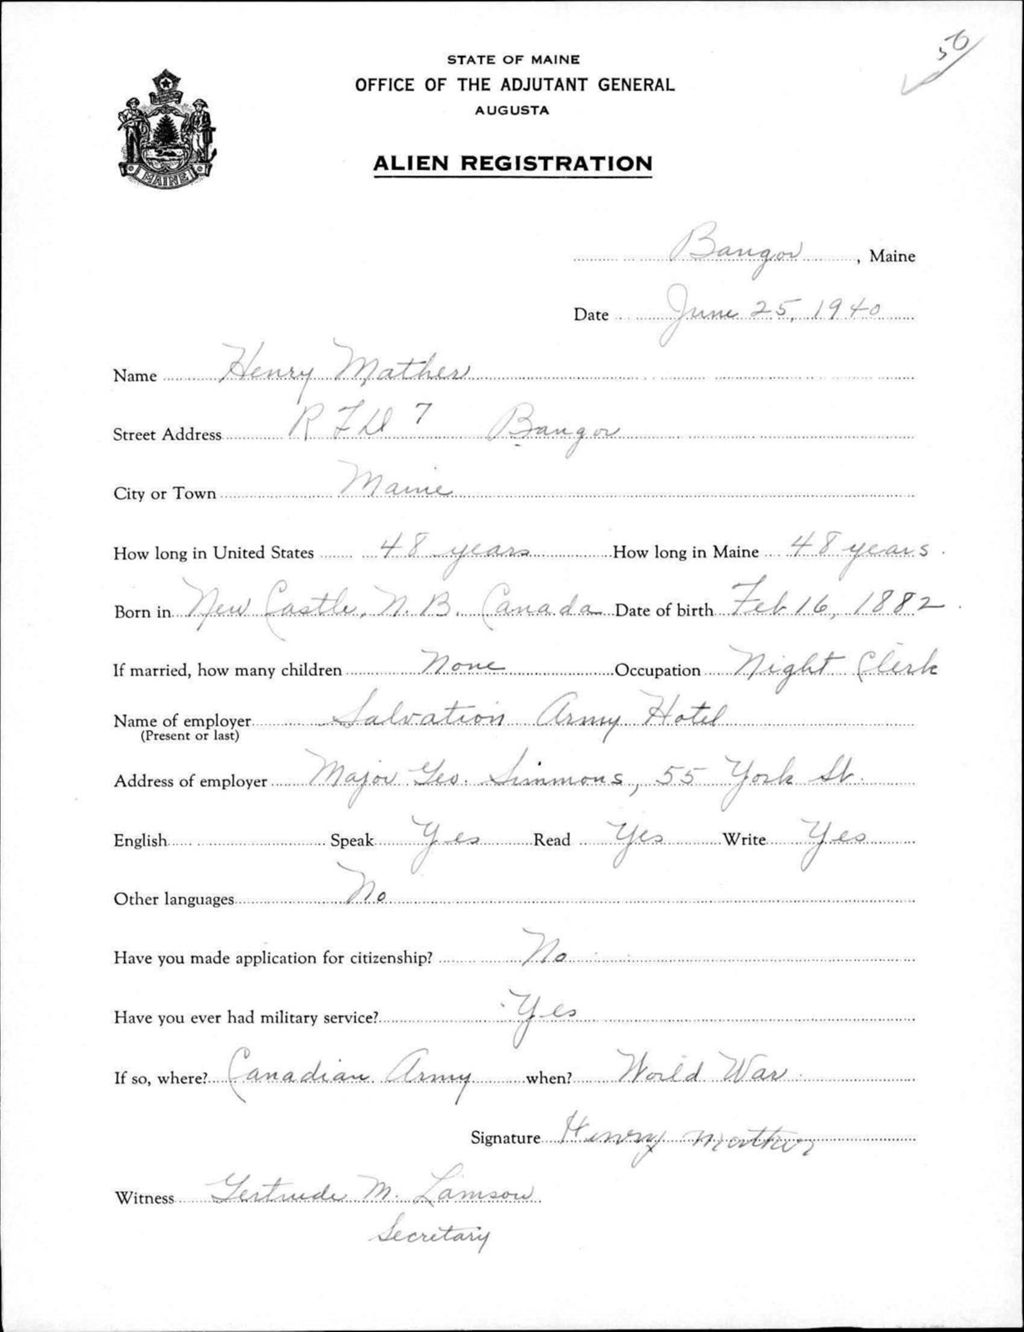 50
STATE OF MAINE
OFFICE OF THE ADJUTANT GENERAL
AUGUSTA
MAINE
ALIEN REGISTRATION
Bangor, Maine
Date June 25, 1940
Name Henry Mather
Street Address R F D 7 Bangor
City or Town Maine
How long in United States 48 years How long in Maine 48 years.
Born in New Castle, N. B. Canada Date of birth Feb 16, 1882.
If married, how many children None Occupation Night Clerk
Name of employer Salvation Army Hotel
(Present or last)
Address of employer Major Geo. Simmons, 55 York St.
English Speak Yes Read Yes Write Yes
Other languages No
Have you made application for citizenship? No
Have you ever had military service? Yes
If so, where? Canadian Army when? World War
Signature Henry Mather
Witness Gertrude M. Lamson
Secretary